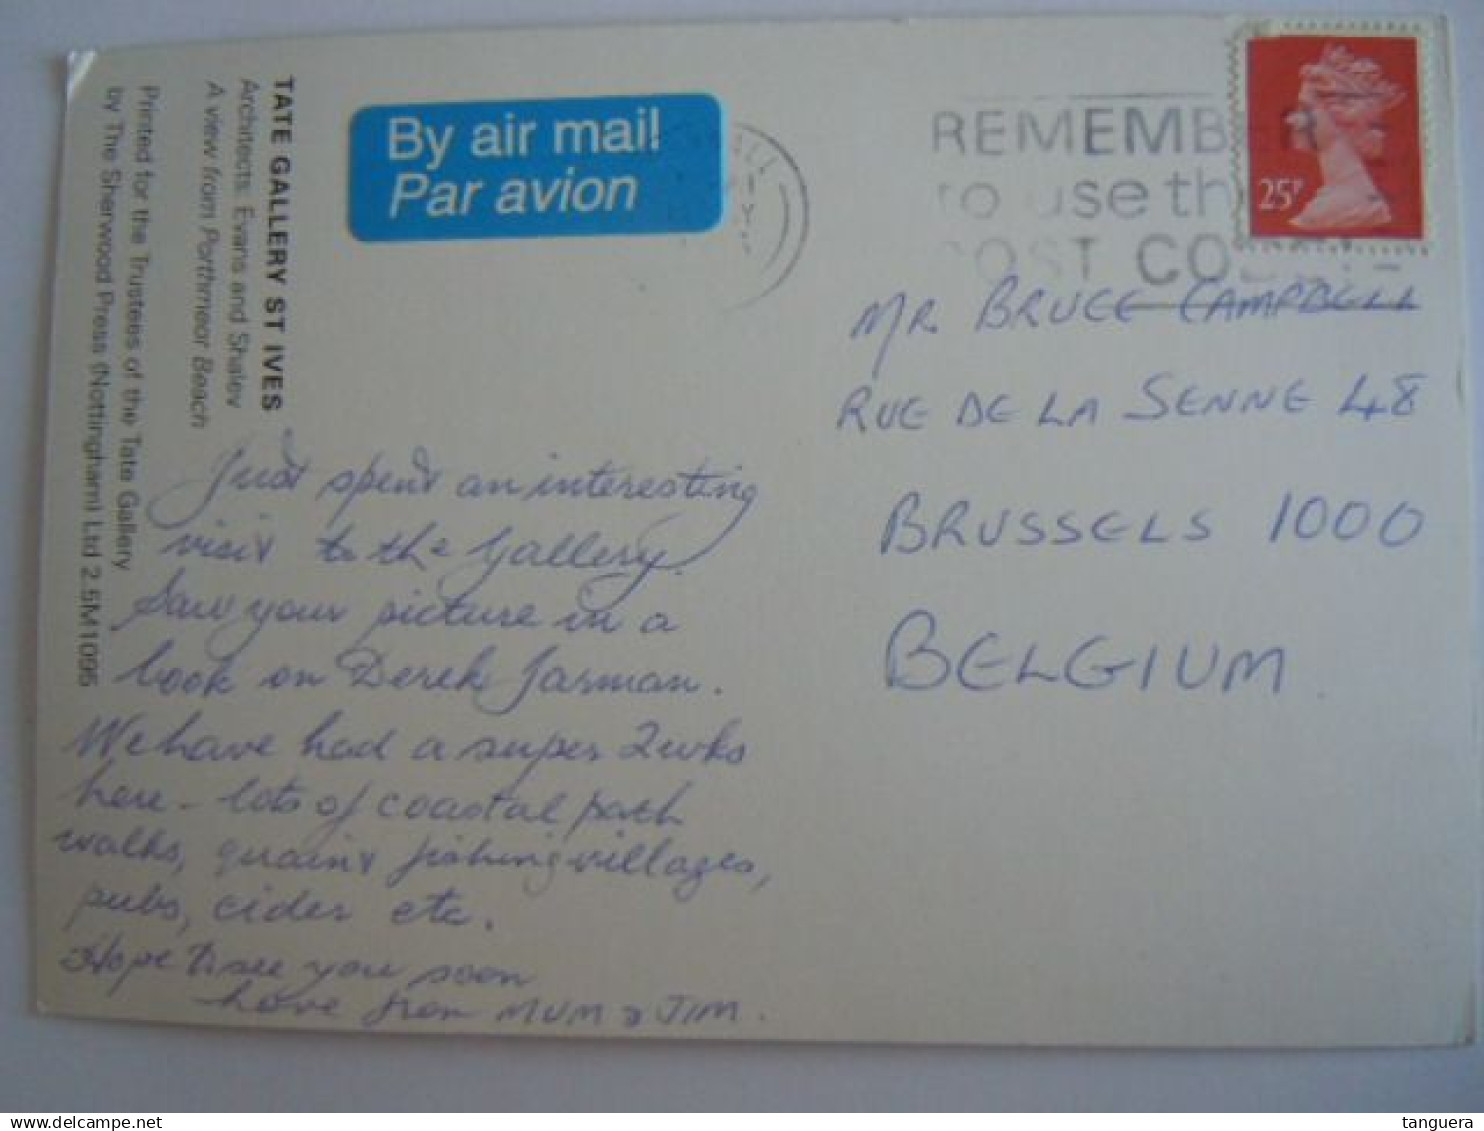 TATE GALLERY ST IVES
Architects: Evans and Shalev
A view from Porthmeor Beach
Printed for the Trustees of the Tate Gallery
by The Sherwood Press (Nottingham) Ltd 2.5M1095
By air mail
Par avion
REMEMBER
to use the
POST CODE
25P
MR BRUCE CAMPBELL
RUE DE LA SENNE 48
BRUSSELS 1000
BELGIUM
Just spent an interesting
visit to the Gallery.
Saw your picture in a
book on Derek Jarman.
We have had a super 2 wks
here - lots of coastal path
walks, quaint fishing villages,
pubs, cider etc.
Hope to see you soon
Love from MUM & JIM.
tanguera